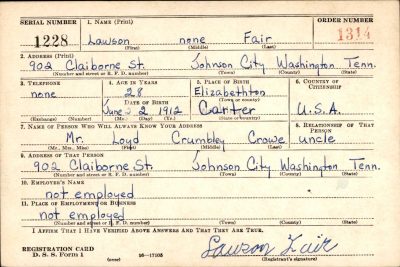 SERIAL NUMBER 1. NAME (Print) ORDER NUMBER
1228 Lawson none Fair 1314
(First) (Middle) (Last)
2. ADDRESS (Print)
902 Claiborne St. Johnson City Washington Tenn.
(Number and street or R. F. D. number) (Town) (County) (State)
3. TELEPHONE 4. AGE IN YEARS 5. PLACE OF BIRTH 6. COUNTRY OF CITIZENSHIP
none 28 Elizabethton
DATE OF BIRTH (Town or county)
June 2 1912 Carter U.S.A.
(Exchange) (Number) (Mo.) (Day) (Yr.) (State or country)
7. NAME OF PERSON WHO WILL ALWAYS KNOW YOUR ADDRESS 8. RELATIONSHIP OF THAT PERSON
Mr. Loyd Crumbley Crowe uncle
(Mr., Mrs., Miss) (First) (Middle) (Last)
9. ADDRESS OF THAT PERSON
902 Claiborne St. Johnson City Washington Tenn.
(Number and street or R. F. D. number) (Town) (County) (State)
10. EMPLOYER'S NAME
not employed
11. PLACE OF EMPLOYMENT OR BUSINESS
not employed
(Number and street or R. F. D. number) (Town) (County) (State)
I AFFIRM THAT I HAVE VERIFIED ABOVE ANSWERS AND THAT THEY ARE TRUE.
REGISTRATION CARD Lawson Fair
D. S. S. Form 1 (over) 16—17105 (Registrant's signature)